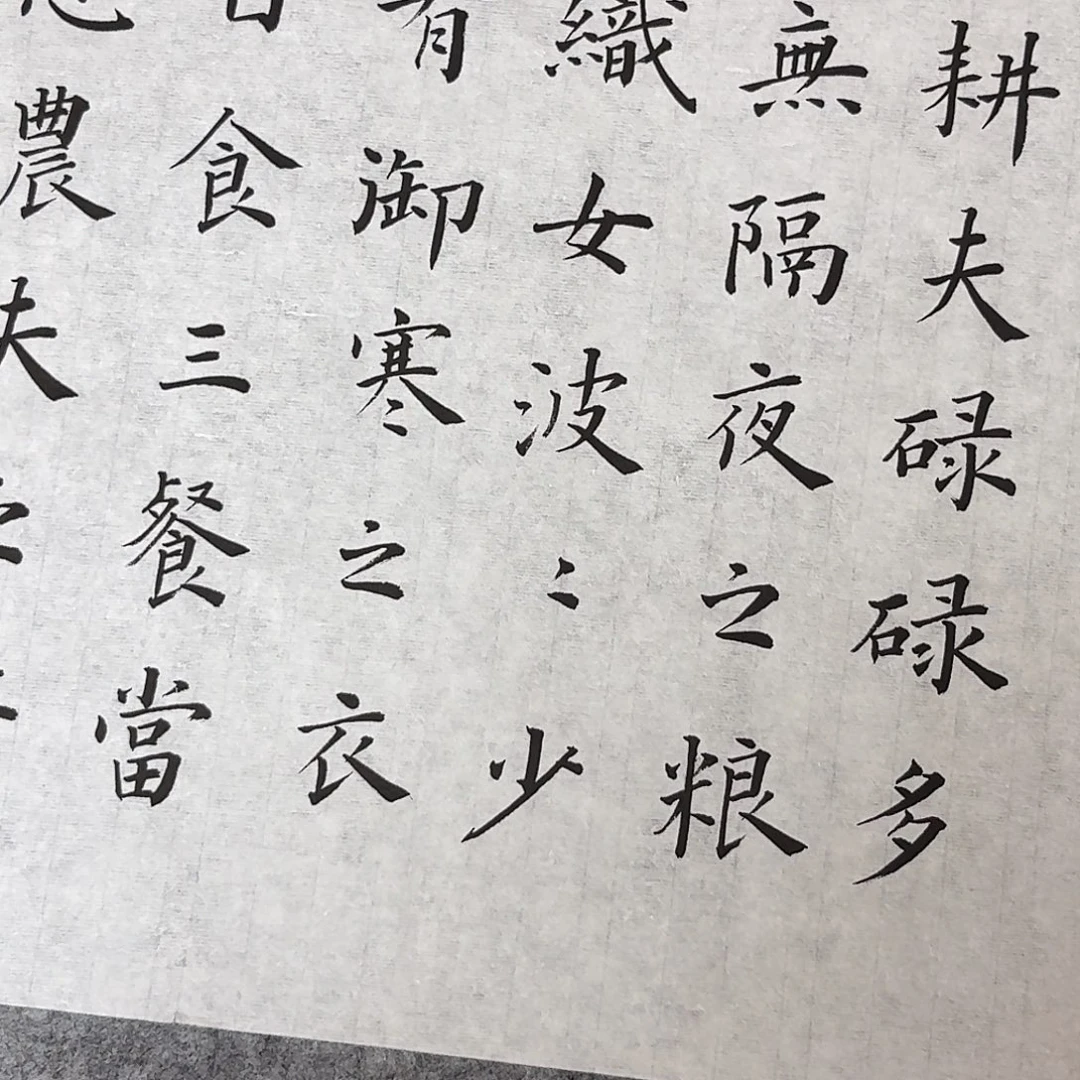 耕夫碌碌多
無隔夜之粮
織女波〻少
有御寒之衣
日食三餐當
農夫之